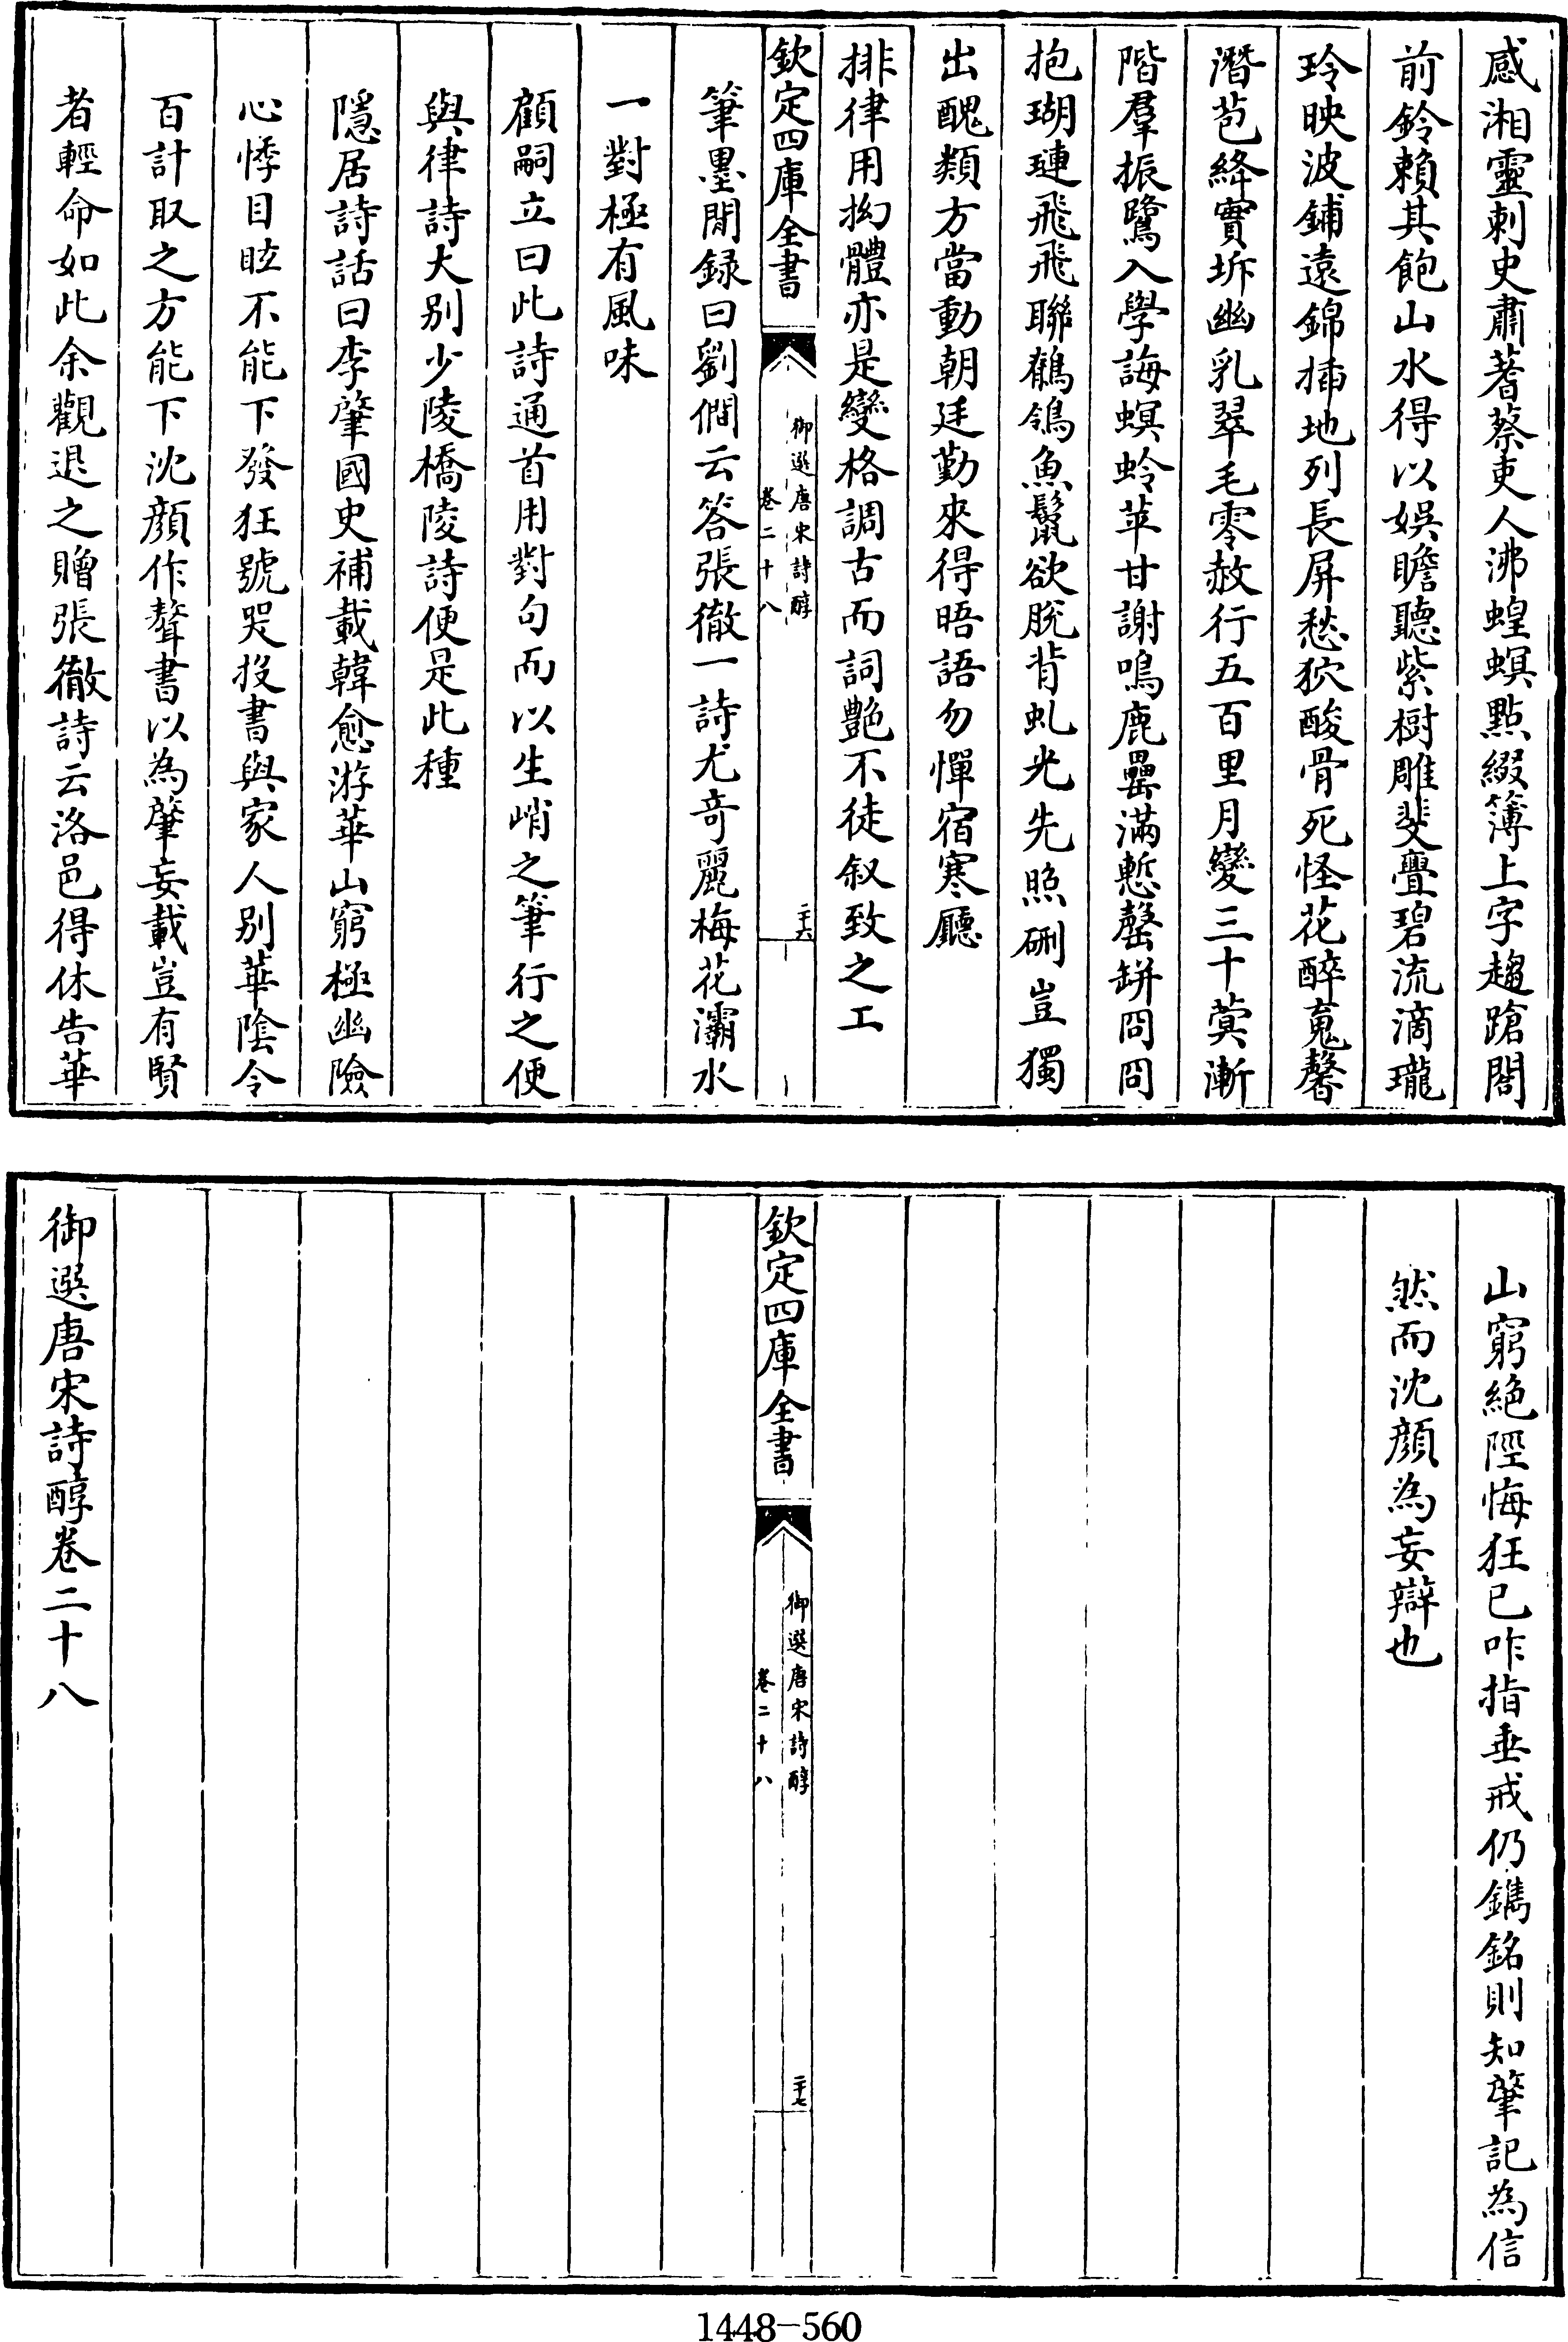 感湘靈刺史肅蓍蔡吏人沸蝗螟點綴簿上字趨蹌閤
前鈴賴其飽山水得以娱瞻聽紫樹雕斐亹碧流滴瓏
玲映波鋪遠錦揷地列長屏愁狖酸骨死怪花醉䰟馨
潛苞絳實坼幽乳翠毛零赦行五百里月變三十蓂漸
階羣振鷺入學誨螟蛉苹甘謝鳴鹿罍滿慙罄缾冏冏
抱瑚璉飛飛聯鶺鴒魚鬛欲脫背虬光先照硎豈獨
出醜類方當動朝廷勤來得晤語勿憚宿寒廳
排律用拗體亦是變格調古而詞艶不徒叙致之工
欽定四庫全書
御選唐宋詩醇
卷二十八
二十六
筆墨閒録曰劉僩云答張徹一詩尤竒麗梅花灞水
一對極有風味
顧嗣立曰此詩通首用對句而以生峭之筆行之便
與律詩大别少陵橋陵詩便是此種
隱居詩話曰李肇國史補載韓愈游華山窮極幽險
心悸目眩不能下發狂號哭投書與家人别華隂令
百計取之方能下沈顔作聱書以為肇妄載豈有賢
者輕命如此余觀退之贈張徹詩云洛邑得休告華
山窮絶陘悔狂已咋指垂戒仍鐫銘則知肇記為信
然而沈顔為妄辯也
欽定四庫全書
御選唐宋詩醇
卷二十八
二十七
御選唐宋詩醇卷二十八
1448-560